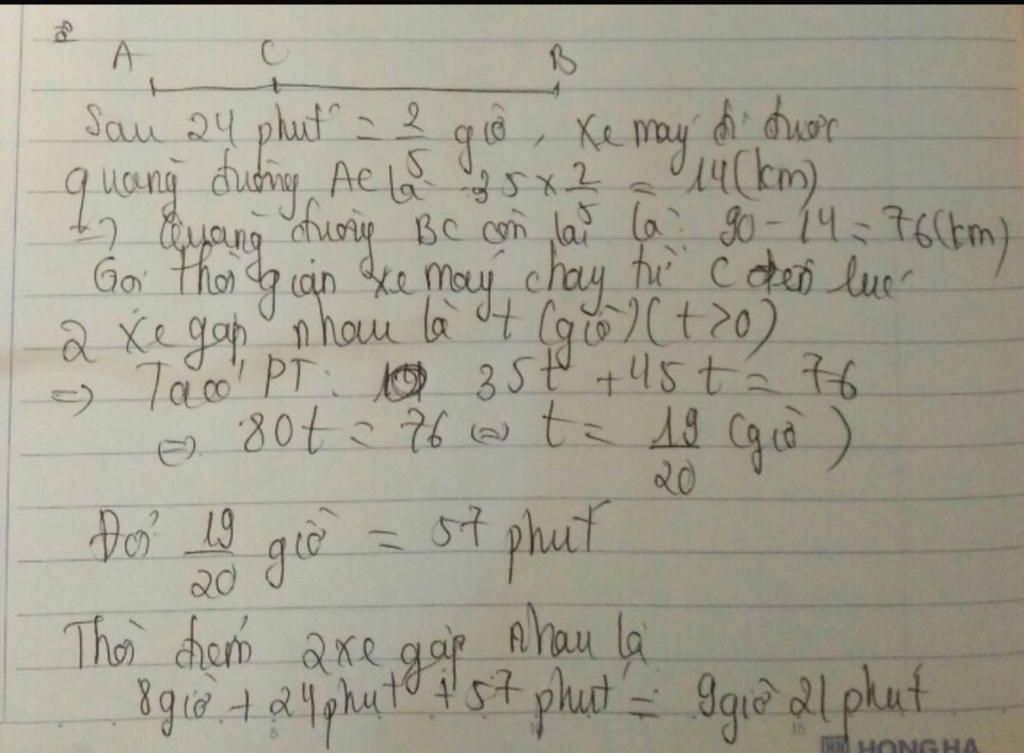 A C B
Sau 24 phút = 2/5 giờ, xe máy đi được
quãng đường AC là 35 x 2/5 = 14 (km)
=> Quãng đường BC còn lại là: 90 - 14 = 76 (km)
Gọi thời gian xe máy chạy từ C đến lúc
2 xe gặp nhau là t (giờ) (t>0)
=> Ta có PT: 35t + 45t = 76
<=> 80t = 76 <=> t = 19/20 (giờ)
Đổi 19/20 giờ = 57 phút
Thời điểm 2 xe gặp nhau là
8 giờ + 24 phút + 57 phút = 9 giờ 21 phút
HONG HA